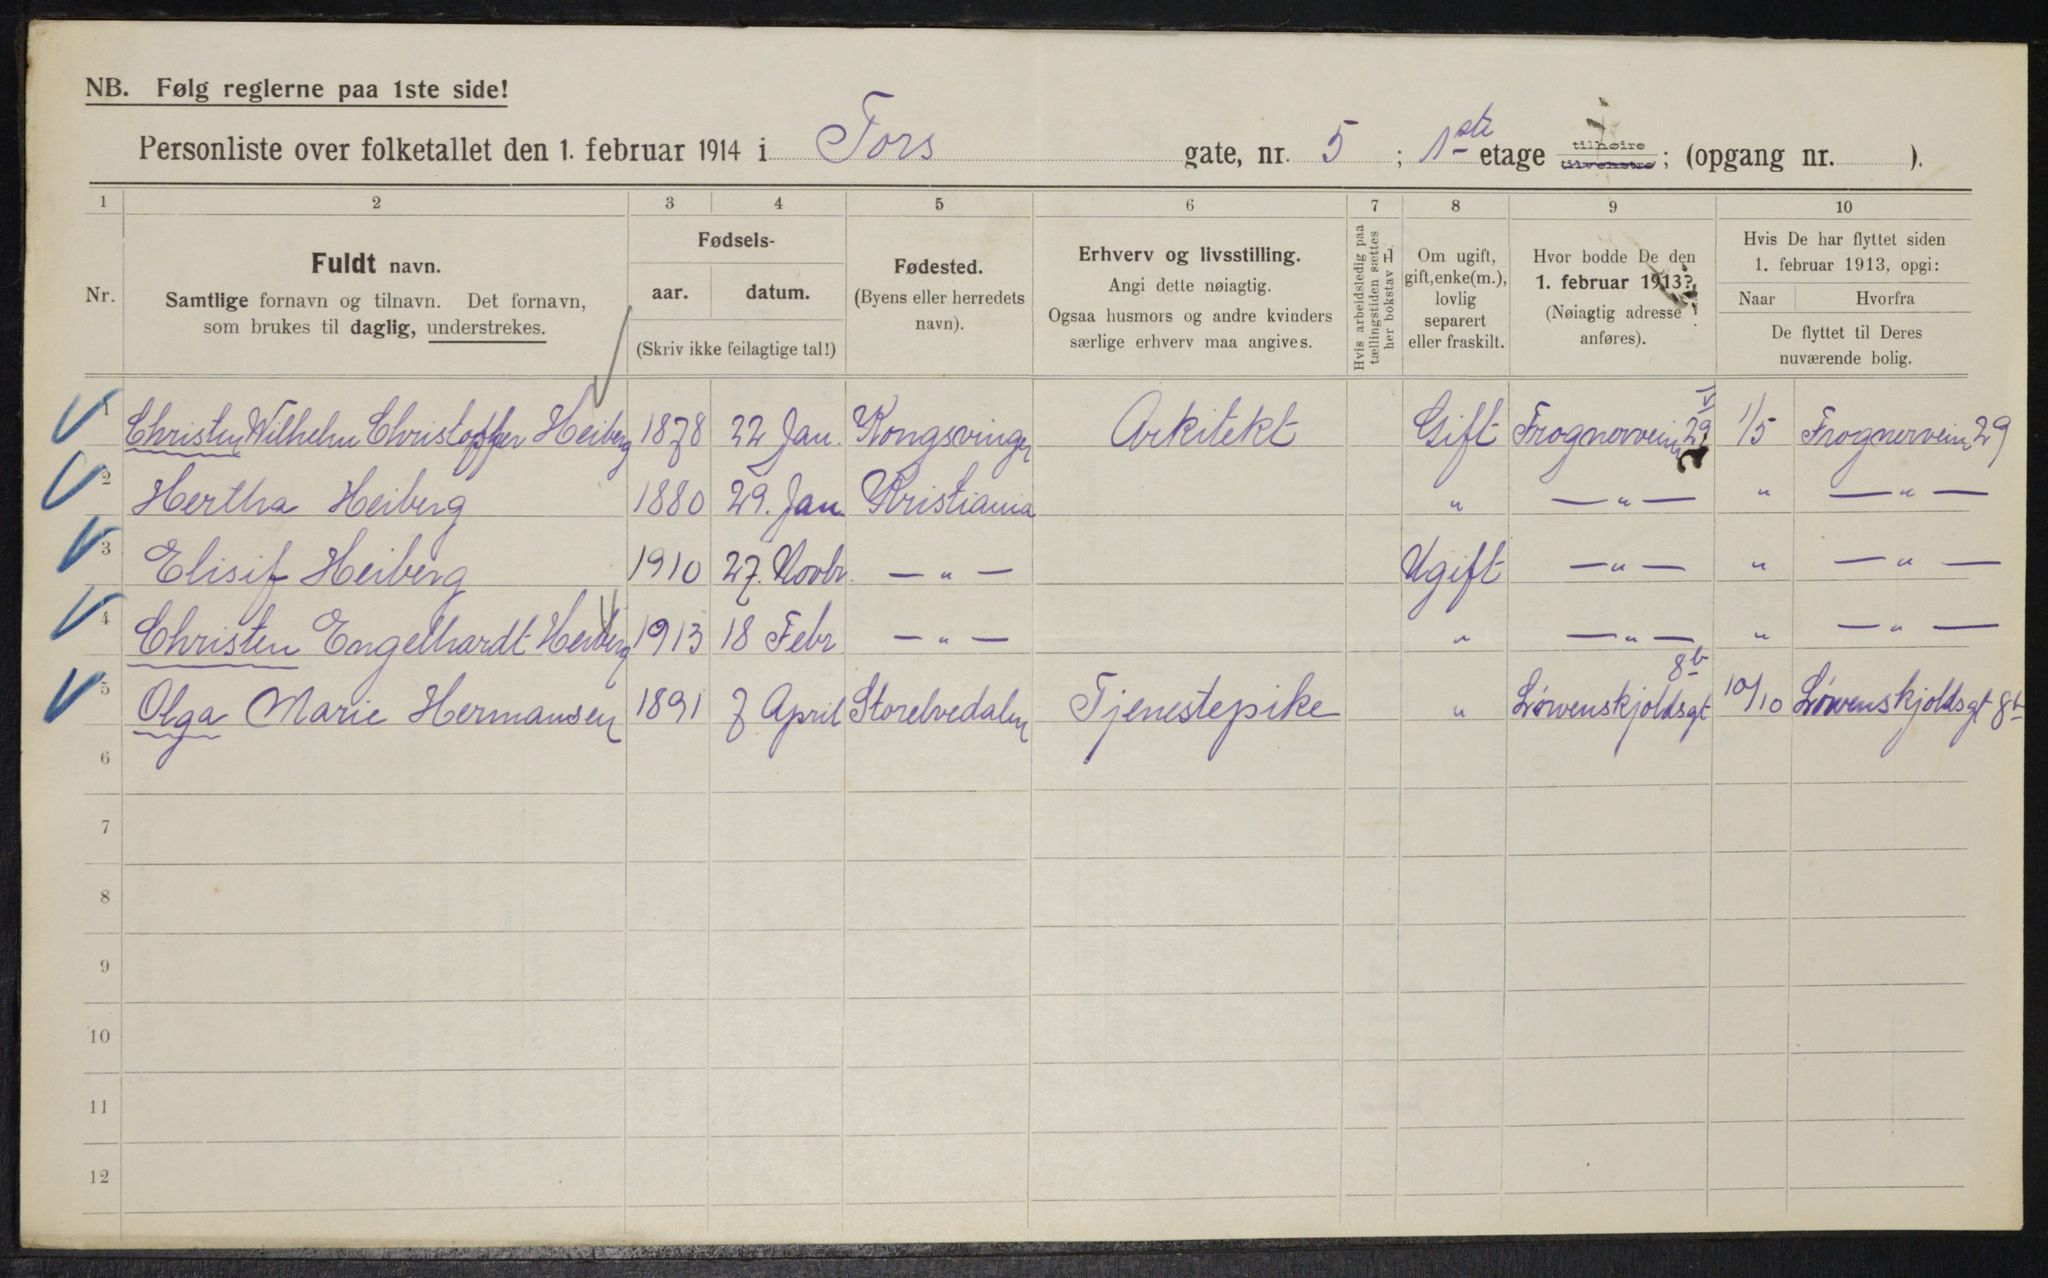 NB. Følg reglerne paa 1ste side!
Personliste over folketallet den 1. februar 1914 i Tors gate, nr. 5 ; 1ste etage tilhøire tilvenstre ; (opgang nr. ).
1 2 3 4 5 6 7 8 9 10
Nr.
Fuldt navn.
Samtlige fornavn og tilnavn. Det fornavn,
som brukes til daglig, understrekes.
Fødsels-
aar. datum.
(Skriv ikke feilagtige tal!)
Fødested.
(Byens eller herredets
navn).
Erhverv og livsstilling.
Angi dette nøiagtig.
Ogsaa husmors og andre kvinders
særlige erhverv maa angives.
Hvis arbeidsledig paa
tællingstiden sættes
her bokstav L.
Om ugift,
gift, enke(m.),
lovlig
separert
eller fraskilt.
Hvor bodde De den
1. februar 1913?
(Nøiagtig adresse
anføres).
Hvis De har flyttet siden
1. februar 1913, opgi:
Naar Hvorfra
De flyttet til Deres
nuværende bolig.
1 Christen Wilhelm Christopher Heiberg 1878 22 Jan. Kongsvinger Arkitekt Gift Frognerveien 29 1/5 Frognerveien 29
2 Hertha Heiberg 1880 29. Jan. Kristiania " — " — " — " —
3 Elisif Heiberg 1910 27. Novbr. — " — Ugift — " — " — " —
4 Christen Engelhardt Heiberg 1913 18 Febr — " — " — " — " — " —
5 Olga Marie Hermansen 1891 7 April Storelvedalen Tjenestepike " Løvenskjoldsgt 8b 10/10 Løvenskjoldsgt 8b
6
7
8
9
10
11
12